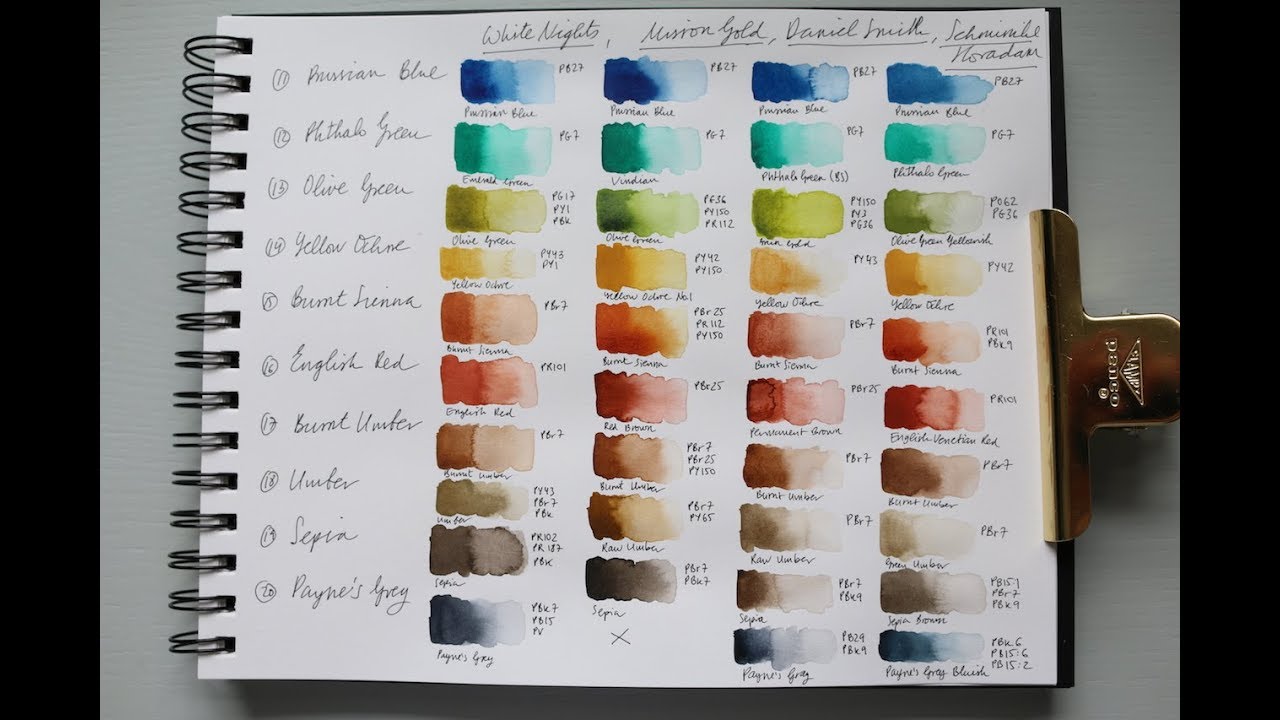 White Nights, Mission Gold, Daniel Smith, Schmincke
Horadam
⑪ Prussian Blue
PB27
PB27
PB27
PB27
Prussian Blue
Prussian Blue
Prussian Blue
Prussian Blue
⑫ Phthalo Green
PG7
PG7
PG7
PG7
Emerald Green
Viridian
Phthalo Green (BS)
Phthalo Green
⑬ Olive Green
PG17
PY1
PBk
PG36
PY150
PR112
PY150
PY3
PG36
PO62
PG36
Olive Green
Olive Green
Olive Green Yellowish
⑭ Yellow Ochre
PY43
PY1
PY42
PY150
PY43
PY42
Yellow Ochre
Yellow Ochre No.1
Yellow Ochre
Yellow Ochre
⑮ Burnt Sienna
PBr7
PBr25
PR112
PY150
PBr7
PR101
PBk9
Burnt Sienna
Burnt Sienna
Burnt Sienna
Burnt Sienna
⑯ English Red
PR101
PBr25
PBr25
PR101
English Red
Red Brown
Permanent Brown
English Venetian Red
⑰ Burnt Umber
PBr7
PBr7
PBr25
PY150
PBr7
PBr7
Burnt Umber
Burnt Umber
Burnt Umber
Burnt Umber
⑱ Umber
PY43
PBr7
PBk
PBr7
PY65
PBr7
PBr7
Umber
Raw Umber
Raw Umber
Green Umber
⑲ Sepia
PR102
PR187
PBk
PBr7
PBk7
PBr7
PBk9
PB15:1
PBr7
PBk9
Sepia
Sepia
Sepia
Sepia Brown
⑳ Payne's Grey
PBk7
PB15
PV
X
PB29
PBk9
PBk6
PB15:6
PB15:2
Payne's Grey
Payne's Gray
Payne's Grey Bluish
CLAMP
penco
©